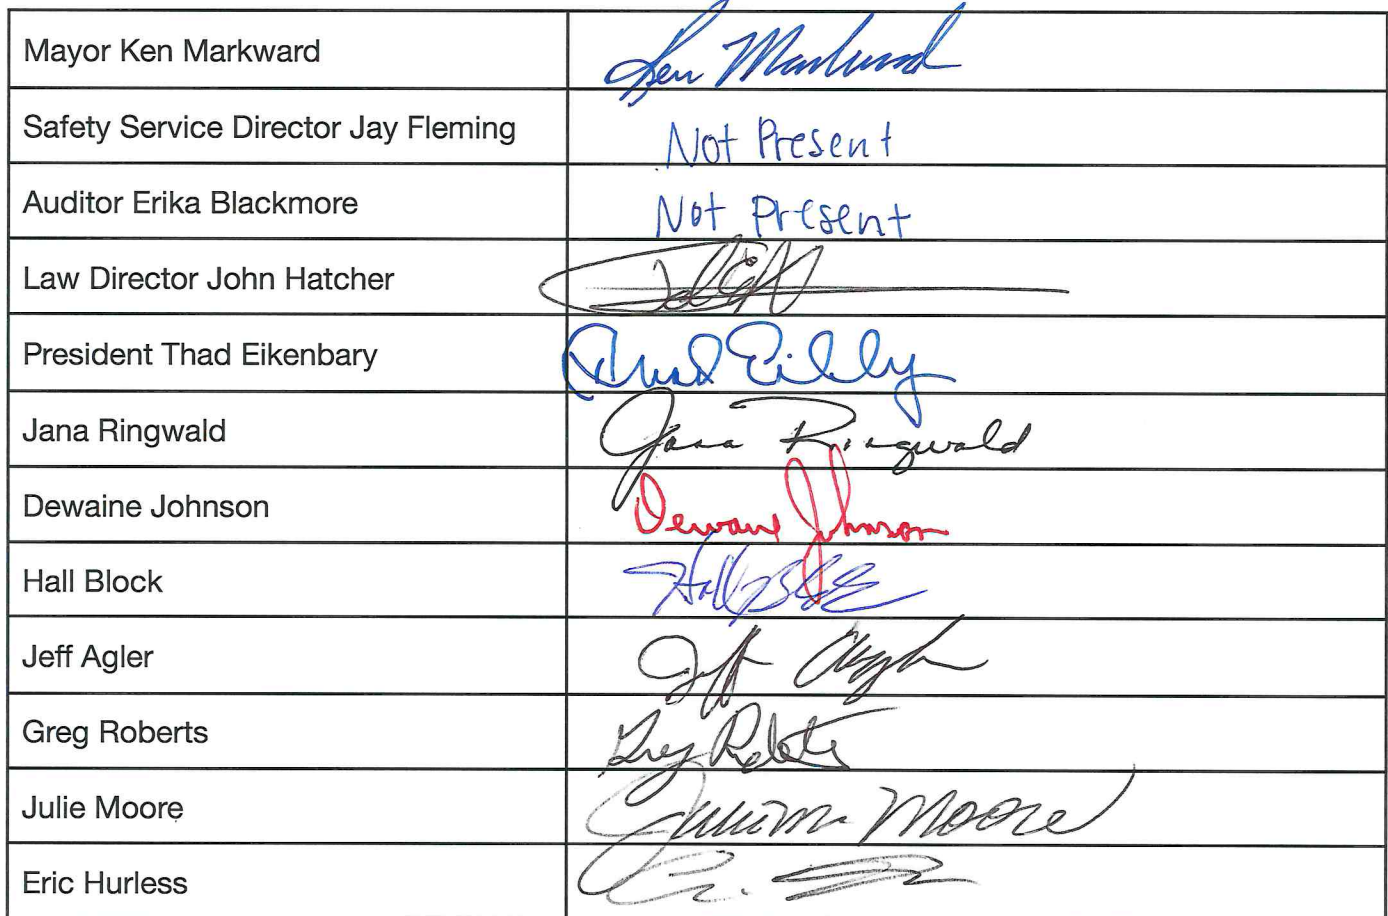 Mayor Ken Markward Ken Markward
Safety Service Director Jay Fleming Not Present
Auditor Erika Blackmore Not Present
Law Director John Hatcher
President Thad Eikenbary Thad
Jana Ringwald Jana Ringwald
Dewaine Johnson Dewaine Johnson
Hall Block
Jeff Agler Jeff Agler
Greg Roberts Greg Roberts
Julie Moore Moore
Eric Hurless